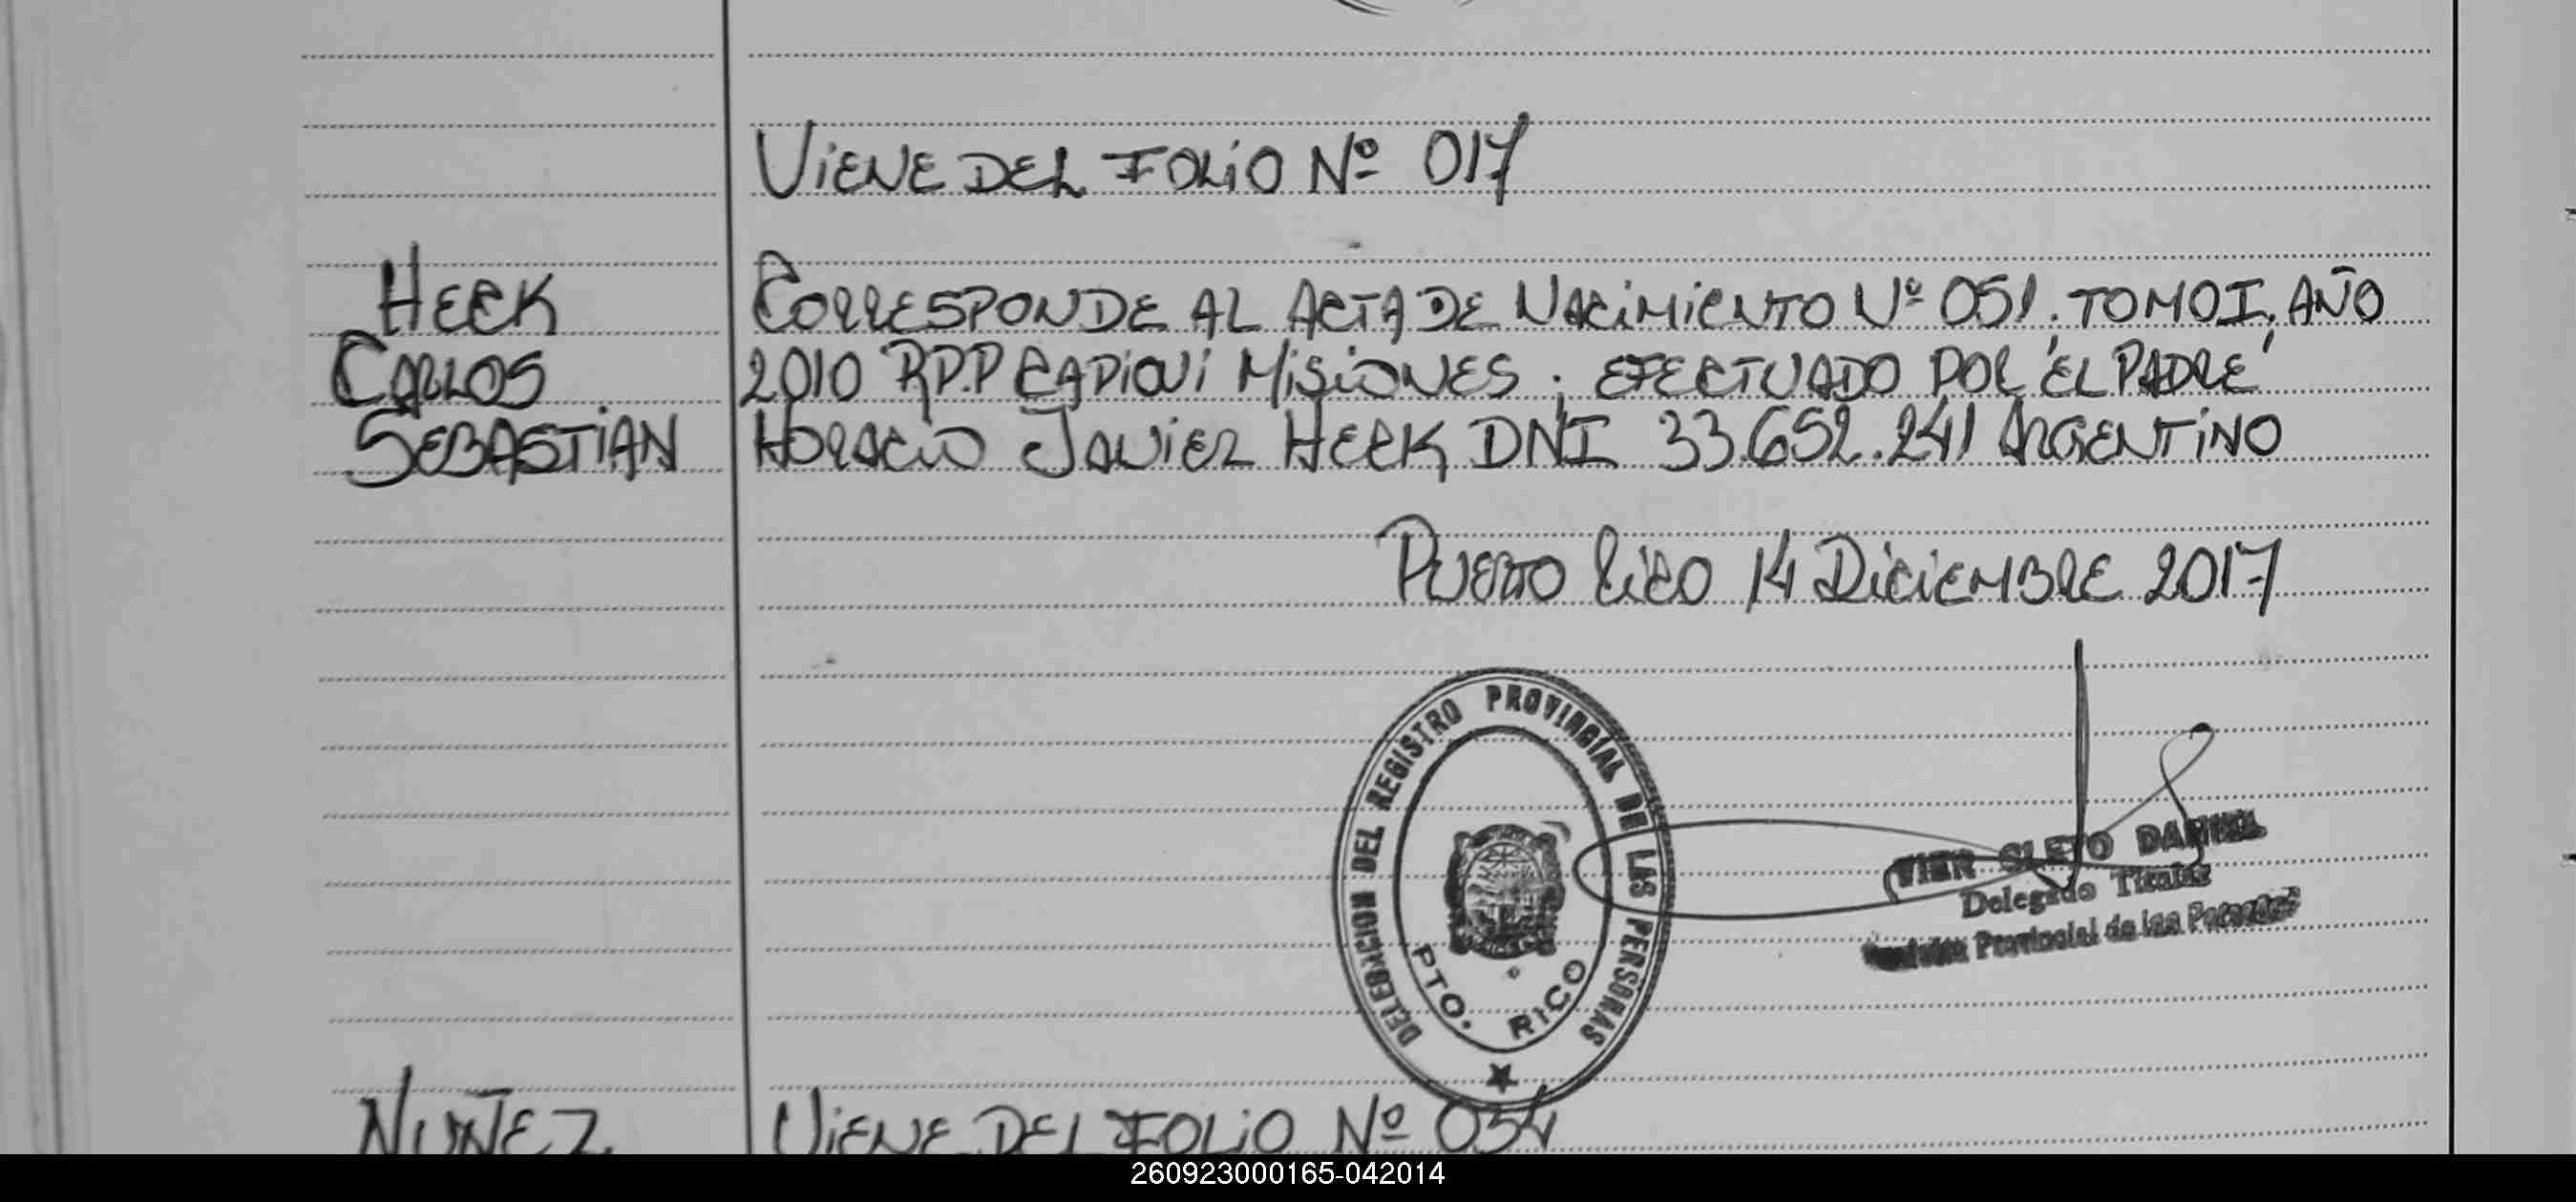 VIENE DEL FOLIO Nº 017
HECK
CARLOS
SEBASTIAN
CORRESPONDE AL ACTA DE NACIMIENTO Nº 051. TOMO I. AÑO
2010 RP.P CAPIOVI MISIONES. EFECTUADO POR "EL PADRE"
HORACIO JAVIER HECK DNI 33.652.241 ARGENTINO
PUERTO RICO 14 DICIEMBRE 2017
DELEGACION DEL REGISTRO PROVINCIAL DE LAS PERSONAS
PTO. RICO
VIER CLETO DANIEL
Delegado Titular
Provincial de las Personas
NUÑEZ
VIENE DEL FOLIO Nº 034
260923000165-042014